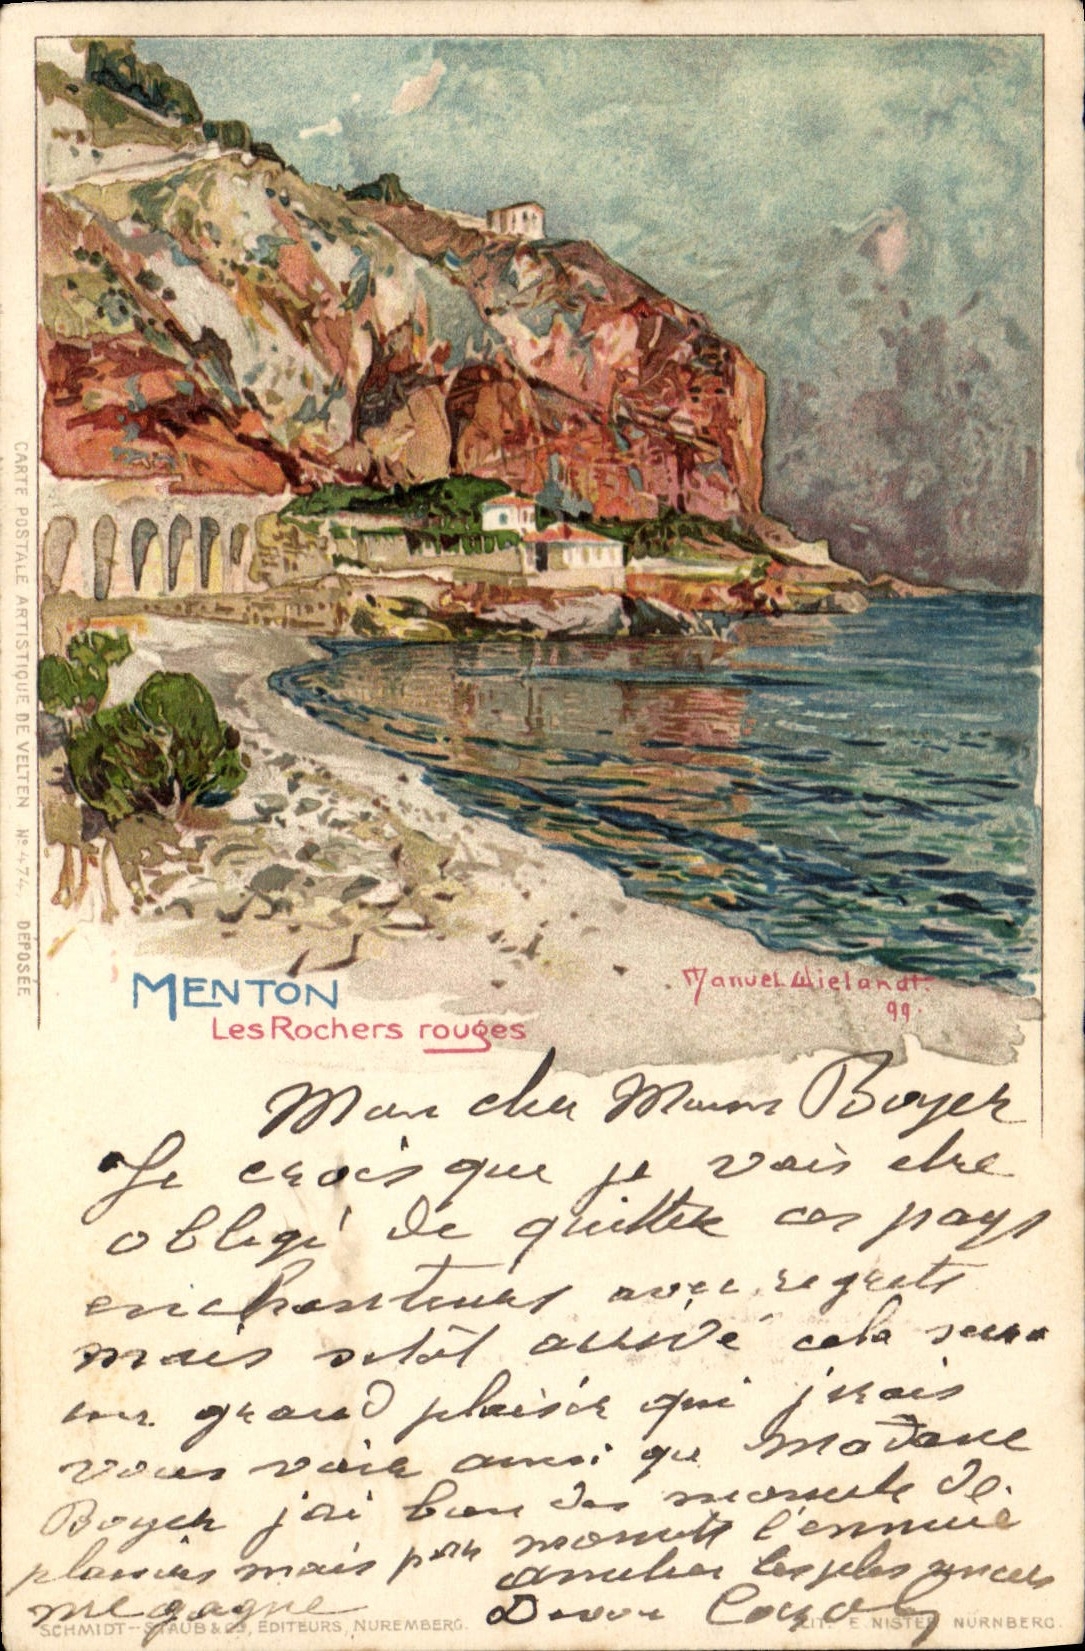 CARTE POSTALE ARTISTIQUE DE VELTEN Nº 474. DÉPOSÉE
MENTON
Les Rochers rouges
Manuel Wielandt.
99.
Mon cher Boyer
Je crois que je vais etre
obligé de quitter ces pays
enchanteurs avec regrets
mais sitôt arrivé cela sera
un grand plaisir que j'irais
vous voir ainsi que Madame
Boyer j'ai bon des moments de
plaisirs mais par moments l'ennuie
me gagne
amitiés les plus sinceres
SCHMIDT-STAUB & Co, EDITEURS, NUREMBERG.
LIT. E. NISTER NÜRNBERG.